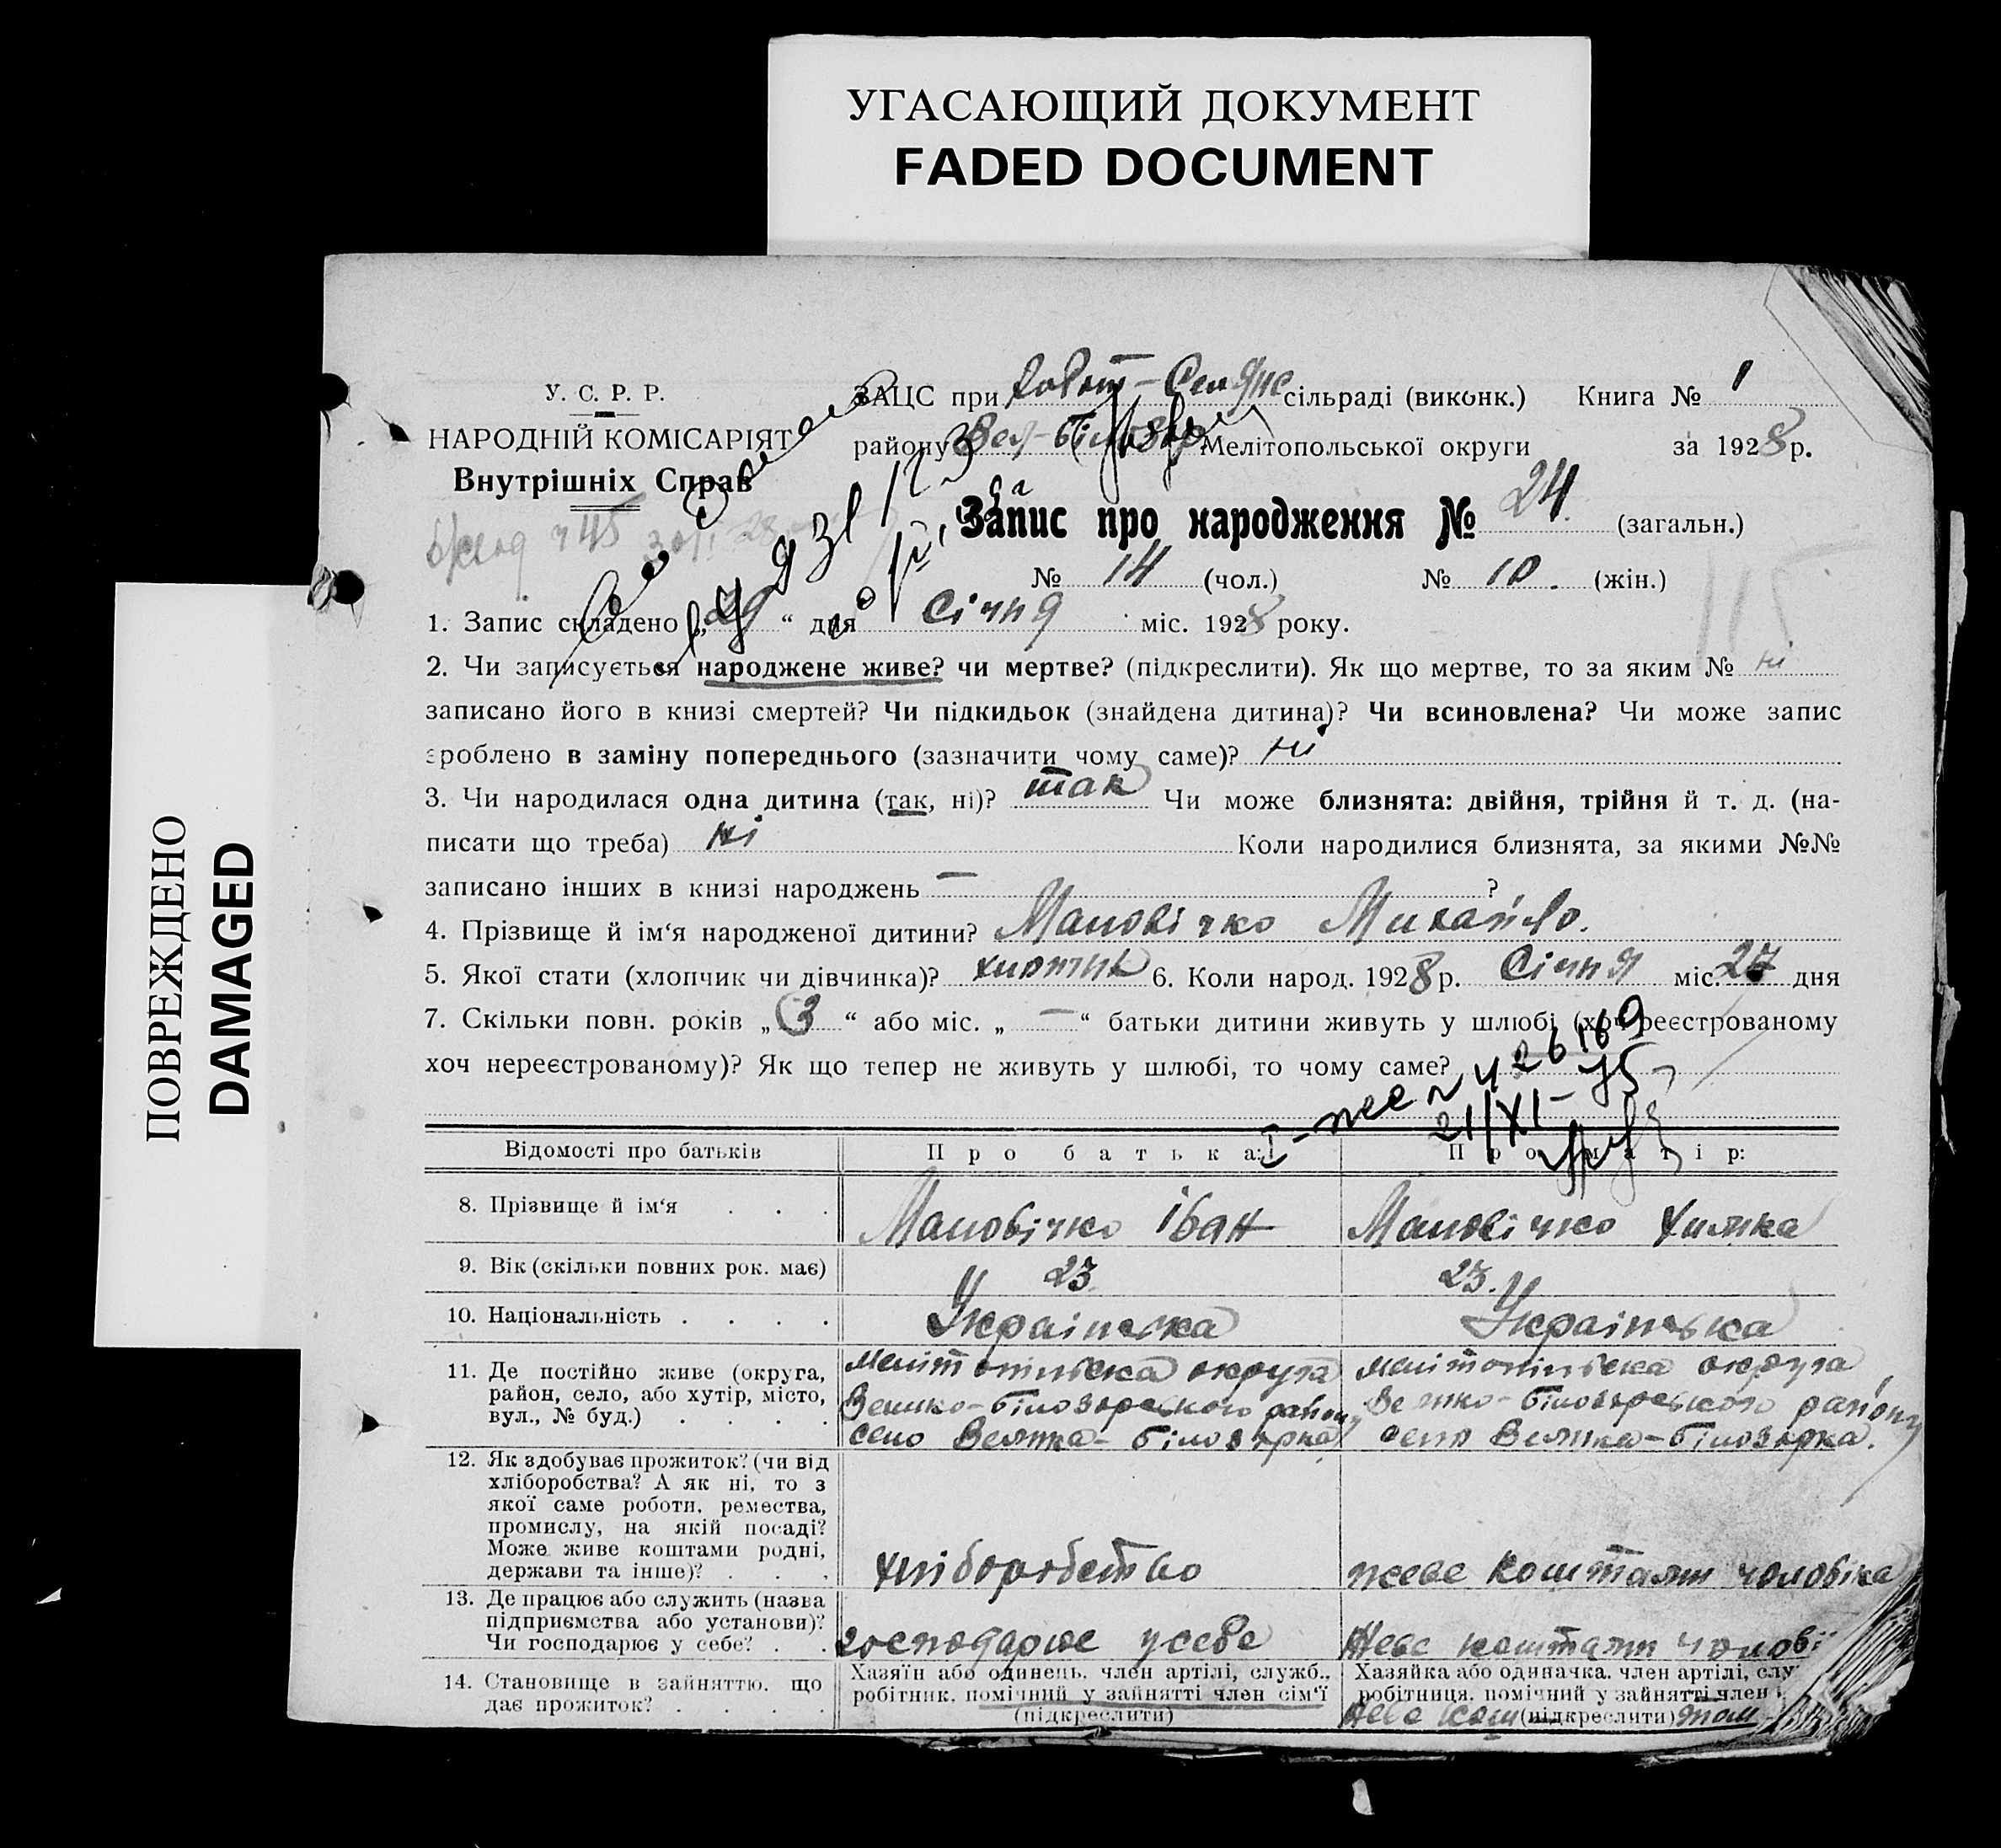 УГАСАЮЩИЙ ДОКУМЕНТ
FADED DOCUMENT
ПОВРЕЖДЕНО
DAMAGED
У. С. Р. Р.
НАРОДНІЙ КОМІСАРІЯТ
Внутрішніх Справ
ЗАЦС при Робот-Селянс сільраді (виконк.) Книга № 1
району Вел-Білозар Мелітопольської округи за 1928 р.
Запис про народження № 24 (загальн.)
№ 14 (чол.) № 10. (жін.)
115
1. Запис складено „29“ дня Січня міс. 1928 року.
2. Чи записується народжене живе? чи мертве? (підкреслити). Як що мертве, то за яким № ні
записано його в книзі смертей? Чи підкидьок (знайдена дитина)? Чи всиновлена? Чи може запис
зроблено в заміну попереднього (зазначити чому саме)? ні
3. Чи народилася одна дитина (так, ні)? так Чи може близнята: двійня, трійня й т. д. (на-
писати що треба) ні Коли народилися близнята, за якими №№
записано інших в книзі народжень — ?
4. Прізвище й ім‘я народженої дитини? Маловічко Михайло.
5. Якої стати (хлопчик чи дівчинка)? хлопчик 6. Коли народ. 1928 р. Січня міс. 27 дня
7. Скільки повн. років „3“ або міс. „—“ батьки дитини живуть у шлюбі (хоч реєстрованому
хоч нереєстрованому)? Як що тепер не живуть у шлюбі, то чому саме?
26169
21/XI-75
Відомості про батьків Про батька: Про матір:
8. Прізвище й ім‘я . . . Маловічко Іван Маловічко Химка
9. Вік (скільки повних рок. має) 23. 23.
10. Національність . . . . Українська Українська
11. Де постійно живе (округа, Мелітопільска округа Мелітопільска округа
район, село, або хутір, місто, Велико-Білозарського району Велико-Білозарського району
вул., № буд.) . . . . село Велика-Білозарка село Велика-Білозарка.
12. Як здобуває прожиток? (чи від
хліборобства? А як ні, то з
якої саме роботи, ремества,
промислу, на якій посаді?
Може живе коштами родні,
держави та інше)? . . . хліборобство живе коштами чоловіка
13. Де працює або служить (назва
підприємства або установи)?
Чи господарює у себе? . . господарює усебе живе коштами чолові
14. Становище в зайняттю, що Хазяїн або одинець, член артілі, служб., Хазяйка або одиначка, член артілі, слу
дає прожиток? . . . . робітник, помічний у зайнятті член сім‘ї робітниця, помічний у зайнятті член
(підкреслити) (підкреслити)